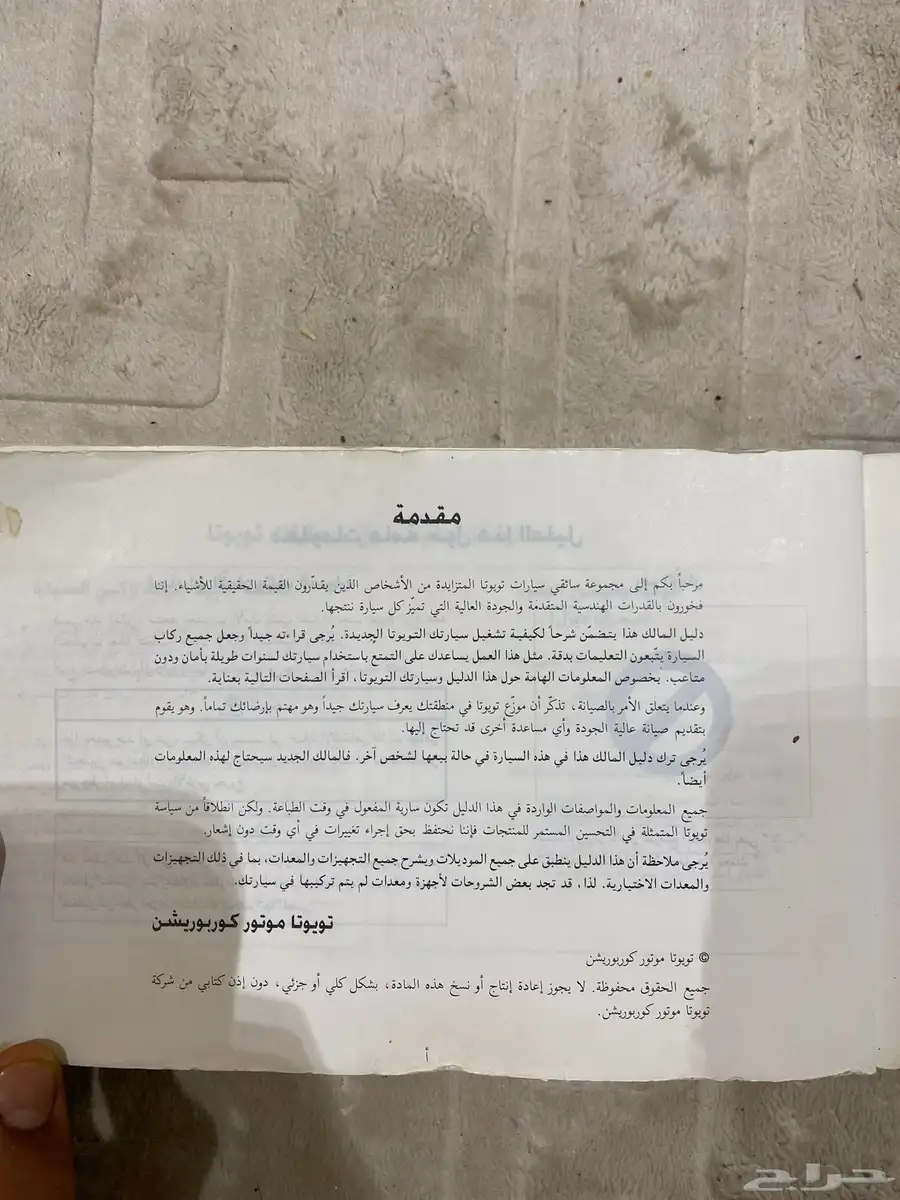 مقدمة
مرحباً بكم إلى مجموعة سائقي سيارات تويوتا المتزايدة من الأشخاص الذين يقدّرون القيمة الحقيقية للأشياء. إننا
فخورون بالقدرات الهندسية المتقدمة والجودة العالية التي تميّز كل سيارة ننتجها.
دليل المالك هذا يتضمّن شرحاً لكيفية تشغيل سيارتك التويوتا الجديدة. يُرجى قراءته جيداً وجعل جميع ركاب
السيارة يتّبعون التعليمات بدقة. مثل هذا العمل يساعدك على التمتع باستخدام سيارتك لسنوات طويلة بأمان ودون
متاعب. بخصوص المعلومات الهامة حول هذا الدليل وسيارتك التويوتا، اقرأ الصفحات التالية بعناية.
وعندما يتعلق الأمر بالصيانة، تذكّر أن موزّع تويوتا في منطقتك يعرف سيارتك جيداً وهو مهتم بإرضائك تماماً. وهو يقوم
بتقديم صيانة عالية الجودة وأي مساعدة أخرى قد تحتاج إليها.
يُرجى ترك دليل المالك هذا في هذه السيارة في حالة بيعها لشخص آخر. فالمالك الجديد سيحتاج لهذه المعلومات
أيضاً.
جميع المعلومات والمواصفات الواردة في هذا الدليل تكون سارية المفعول في وقت الطباعة. ولكن انطلاقاً من سياسة
تويوتا المتمثلة في التحسين المستمر للمنتجات فإننا نحتفظ بحق إجراء تغييرات في أي وقت دون إشعار.
يُرجى ملاحظة أن هذا الدليل ينطبق على جميع الموديلات ويشرح جميع التجهيزات والمعدات، بما في ذلك التجهيزات
والمعدات الاختيارية. لذا، قد تجد بعض الشروحات لأجهزة ومعدات لم يتم تركيبها في سيارتك.
تويوتا موتور كوربوريشن
© تويوتا موتور كوربوريشن
جميع الحقوق محفوظة. لا يجوز إعادة إنتاج أو نسخ هذه المادة، بشكل كلي أو جزئي، دون إذن كتابي من شركة
تويوتا موتور كوربوريشن.
أ
حراج